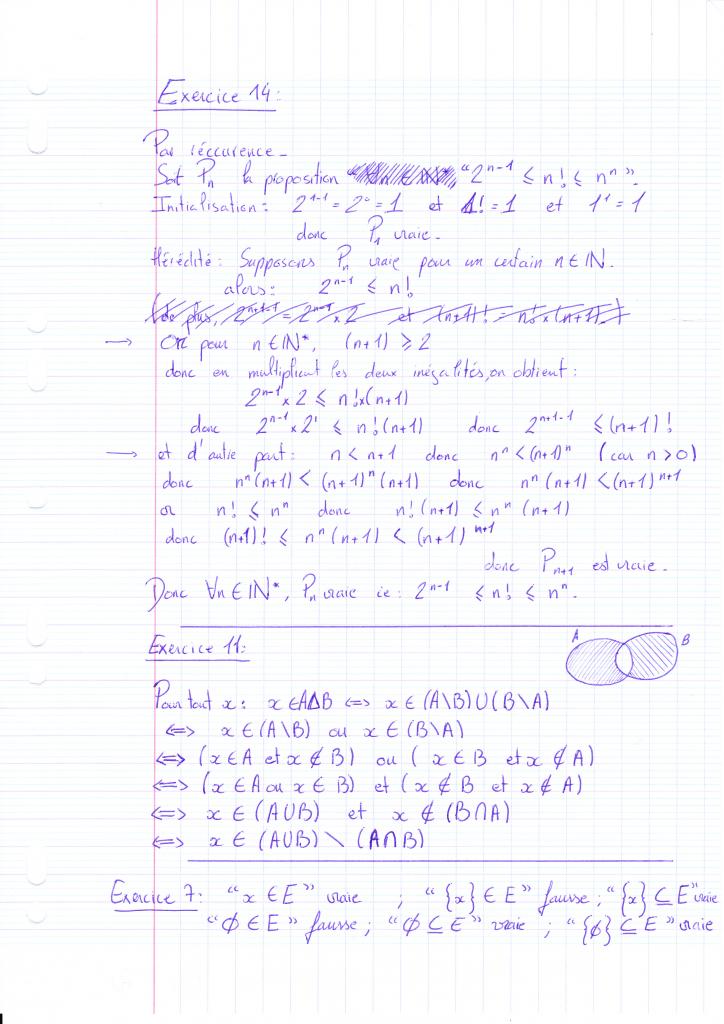 Exercice 14:
Par réccurence_
Soit Pₙ la proposition "2ⁿ⁻¹ ⩽ n! ⩽ nⁿ".
Initialisation: 2¹⁻¹ = 2⁰ = 1 et 1! = 1 et 1¹ = 1
donc P₁ vraie_
Hérédité: Supposons Pₙ vraie pour un certain n ∈ ℕ.
alors: 2ⁿ⁻¹ ⩽ n!
(de plus, 2ⁿ⁺¹⁻¹ = 2ⁿ⁻¹ × 2 et (n+1)! = n! × (n+1).)
→ Or pour n ∈ ℕ*, (n+1) ⩾ 2
donc en multipliant les deux inégalités, on obtient:
2ⁿ⁻¹ × 2 ⩽ n! × (n+1)
donc 2ⁿ⁻¹ × 2¹ ⩽ n! (n+1) donc 2ⁿ⁺¹⁻¹ ⩽ (n+1)!
→ et d'autre part: n < n+1 donc nⁿ < (n+1)ⁿ (car n > 0)
donc nⁿ (n+1) < (n+1)ⁿ (n+1) donc nⁿ (n+1) < (n+1)ⁿ⁺¹
or n! ⩽ nⁿ donc n! (n+1) ⩽ nⁿ (n+1)
donc (n+1)! ⩽ nⁿ (n+1) < (n+1)ⁿ⁺¹
donc Pₙ₊₁ est vraie_
Donc ∀n ∈ ℕ*, Pₙ vraie ie: 2ⁿ⁻¹ ⩽ n! ⩽ nⁿ.
A B
Exercice 11:
Pour tout x: x ∈ AΔB ⟺ x ∈ (A\B)∪(B\A)
⟺ x ∈ (A\B) ou x ∈ (B\A)
⟺ (x ∈ A et x ∉ B) ou (x ∈ B et x ∉ A)
⟺ (x ∈ A ou x ∈ B) et (x ∉ B et x ∉ A)
⟺ x ∈ (A∪B) et x ∉ (B∩A)
⟺ x ∈ (A∪B) \ (A∩B)
Exercice 7: "x ∈ E" vraie ; "{x} ∈ E" fausse ; "{x} ⊆ E" vraie
"∅ ∈ E" fausse ; "∅ ⊆ E" vraie ; "{∅} ⊆ E" vraie